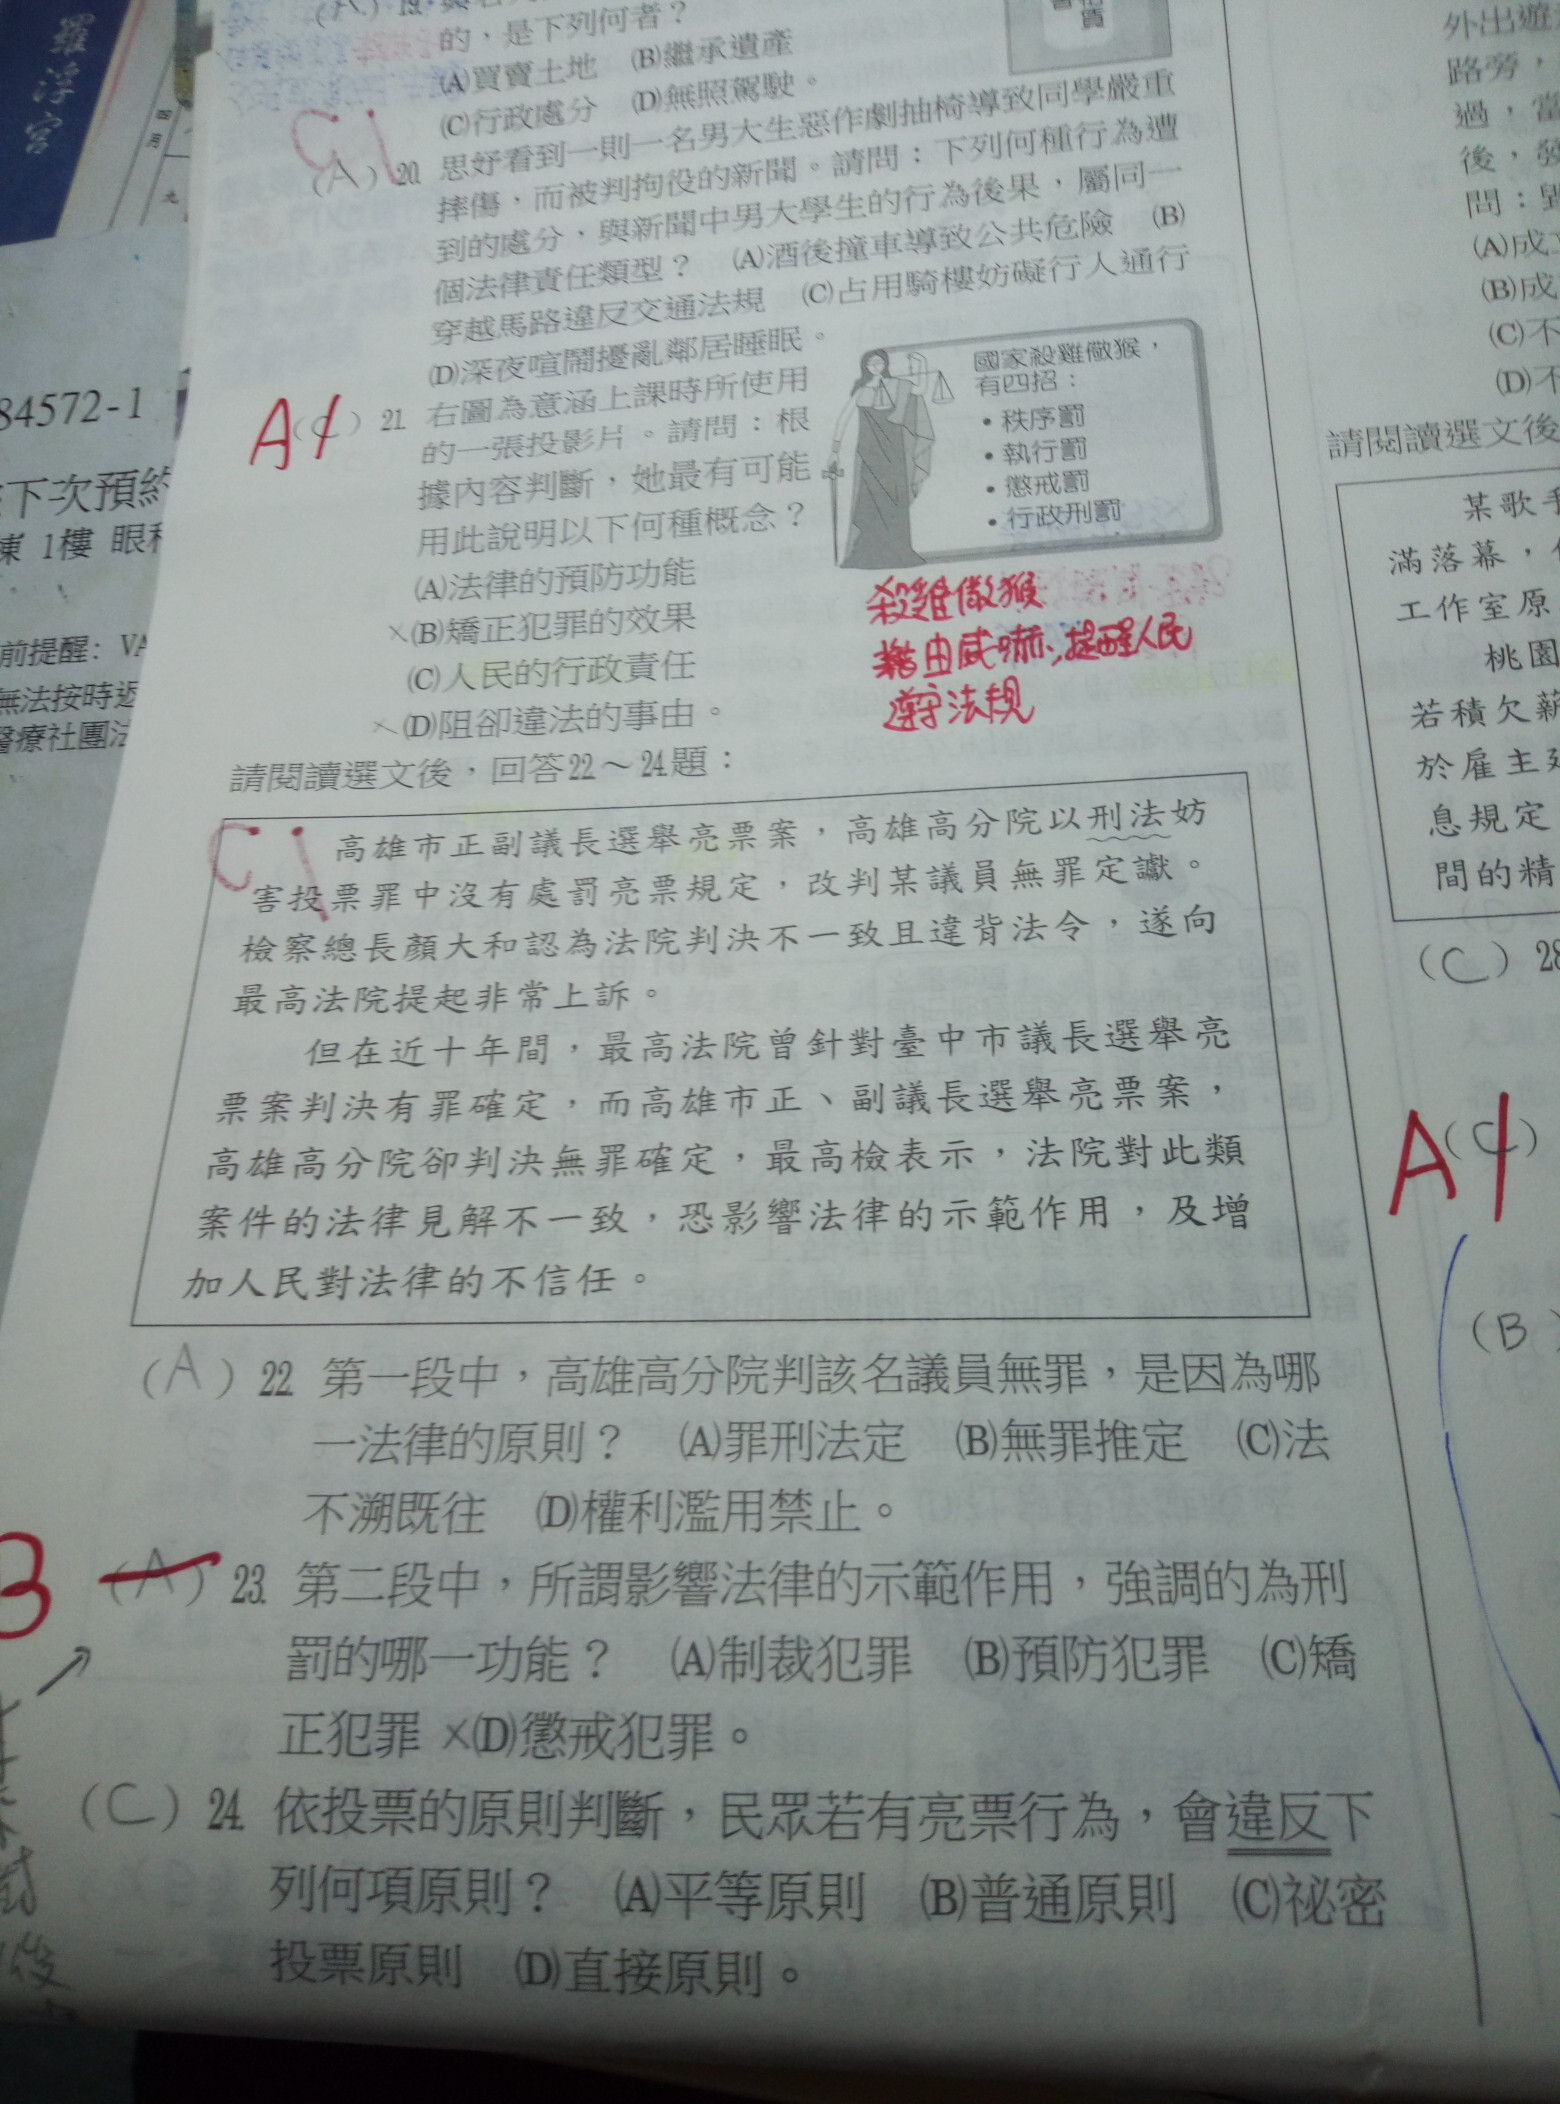 羅浮宮
四月
九
84572-1
下次預約
棟 1樓 眼科
前提醒：VA
無法按時返
醫療社團法
(A) 19.
的，是下列何者？
(A)買賣土地 (B)繼承遺產
(C)行政處分 (D)無照駕駛。
C
(A) 20. 思妤看到一則一名男大生惡作劇抽椅導致同學嚴重
摔傷，而被判拘役的新聞。請問：下列何種行為遭
到的處分，與新聞中男大學生的行為後果，屬同一
個法律責任類型？ (A)酒後撞車導致公共危險 (B)
穿越馬路違反交通法規 (C)占用騎樓妨礙行人通行
(D)深夜喧鬧擾亂鄰居睡眠。
A (C) 21. 右圖為意涵上課時所使用
的一張投影片。請問：根
據內容判斷，她最有可能
用此說明以下何種概念？
(A)法律的預防功能
×(B)矯正犯罪的效果
(C)人民的行政責任
×(D)阻卻違法的事由。
國家殺雞儆猴，
有四招：
•秩序罰
•執行罰
•懲戒罰
•行政刑罰
殺雞儆猴
藉由威嚇，提醒人民
遵守法規
請閱讀選文後，回答22～24題：
C
高雄市正副議長選舉亮票案，高雄高分院以刑法妨
害投票罪中沒有處罰亮票規定，改判某議員無罪定讞。
檢察總長顏大和認為法院判決不一致且違背法令，遂向
最高法院提起非常上訴。
但在近十年間，最高法院曾針對臺中市議長選舉亮
票案判決有罪確定，而高雄市正、副議長選舉亮票案，
高雄高分院卻判決無罪確定，最高檢表示，法院對此類
案件的法律見解不一致，恐影響法律的示範作用，及增
加人民對法律的不信任。
(A) 22. 第一段中，高雄高分院判該名議員無罪，是因為哪
一法律的原則？ (A)罪刑法定 (B)無罪推定 (C)法
不溯既往 (D)權利濫用禁止。
B (A) 23. 第二段中，所謂影響法律的示範作用，強調的為刑
罰的哪一功能？ (A)制裁犯罪 (B)預防犯罪 (C)矯
正犯罪 ×(D)懲戒犯罪。
(C) 24. 依投票的原則判斷，民眾若有亮票行為，會違反下
列何項原則？ (A)平等原則 (B)普通原則 (C)祕密
投票原則 (D)直接原則。
外出遊
路旁，
過，當
後，發
問：
(A)成
(B)成
(C)不
(D)不
請閱讀選文後
某歌手
滿落幕，
工作室原
桃園
若積欠薪
於雇主
息規定
間的精
(C) 28
A (C)
(B)